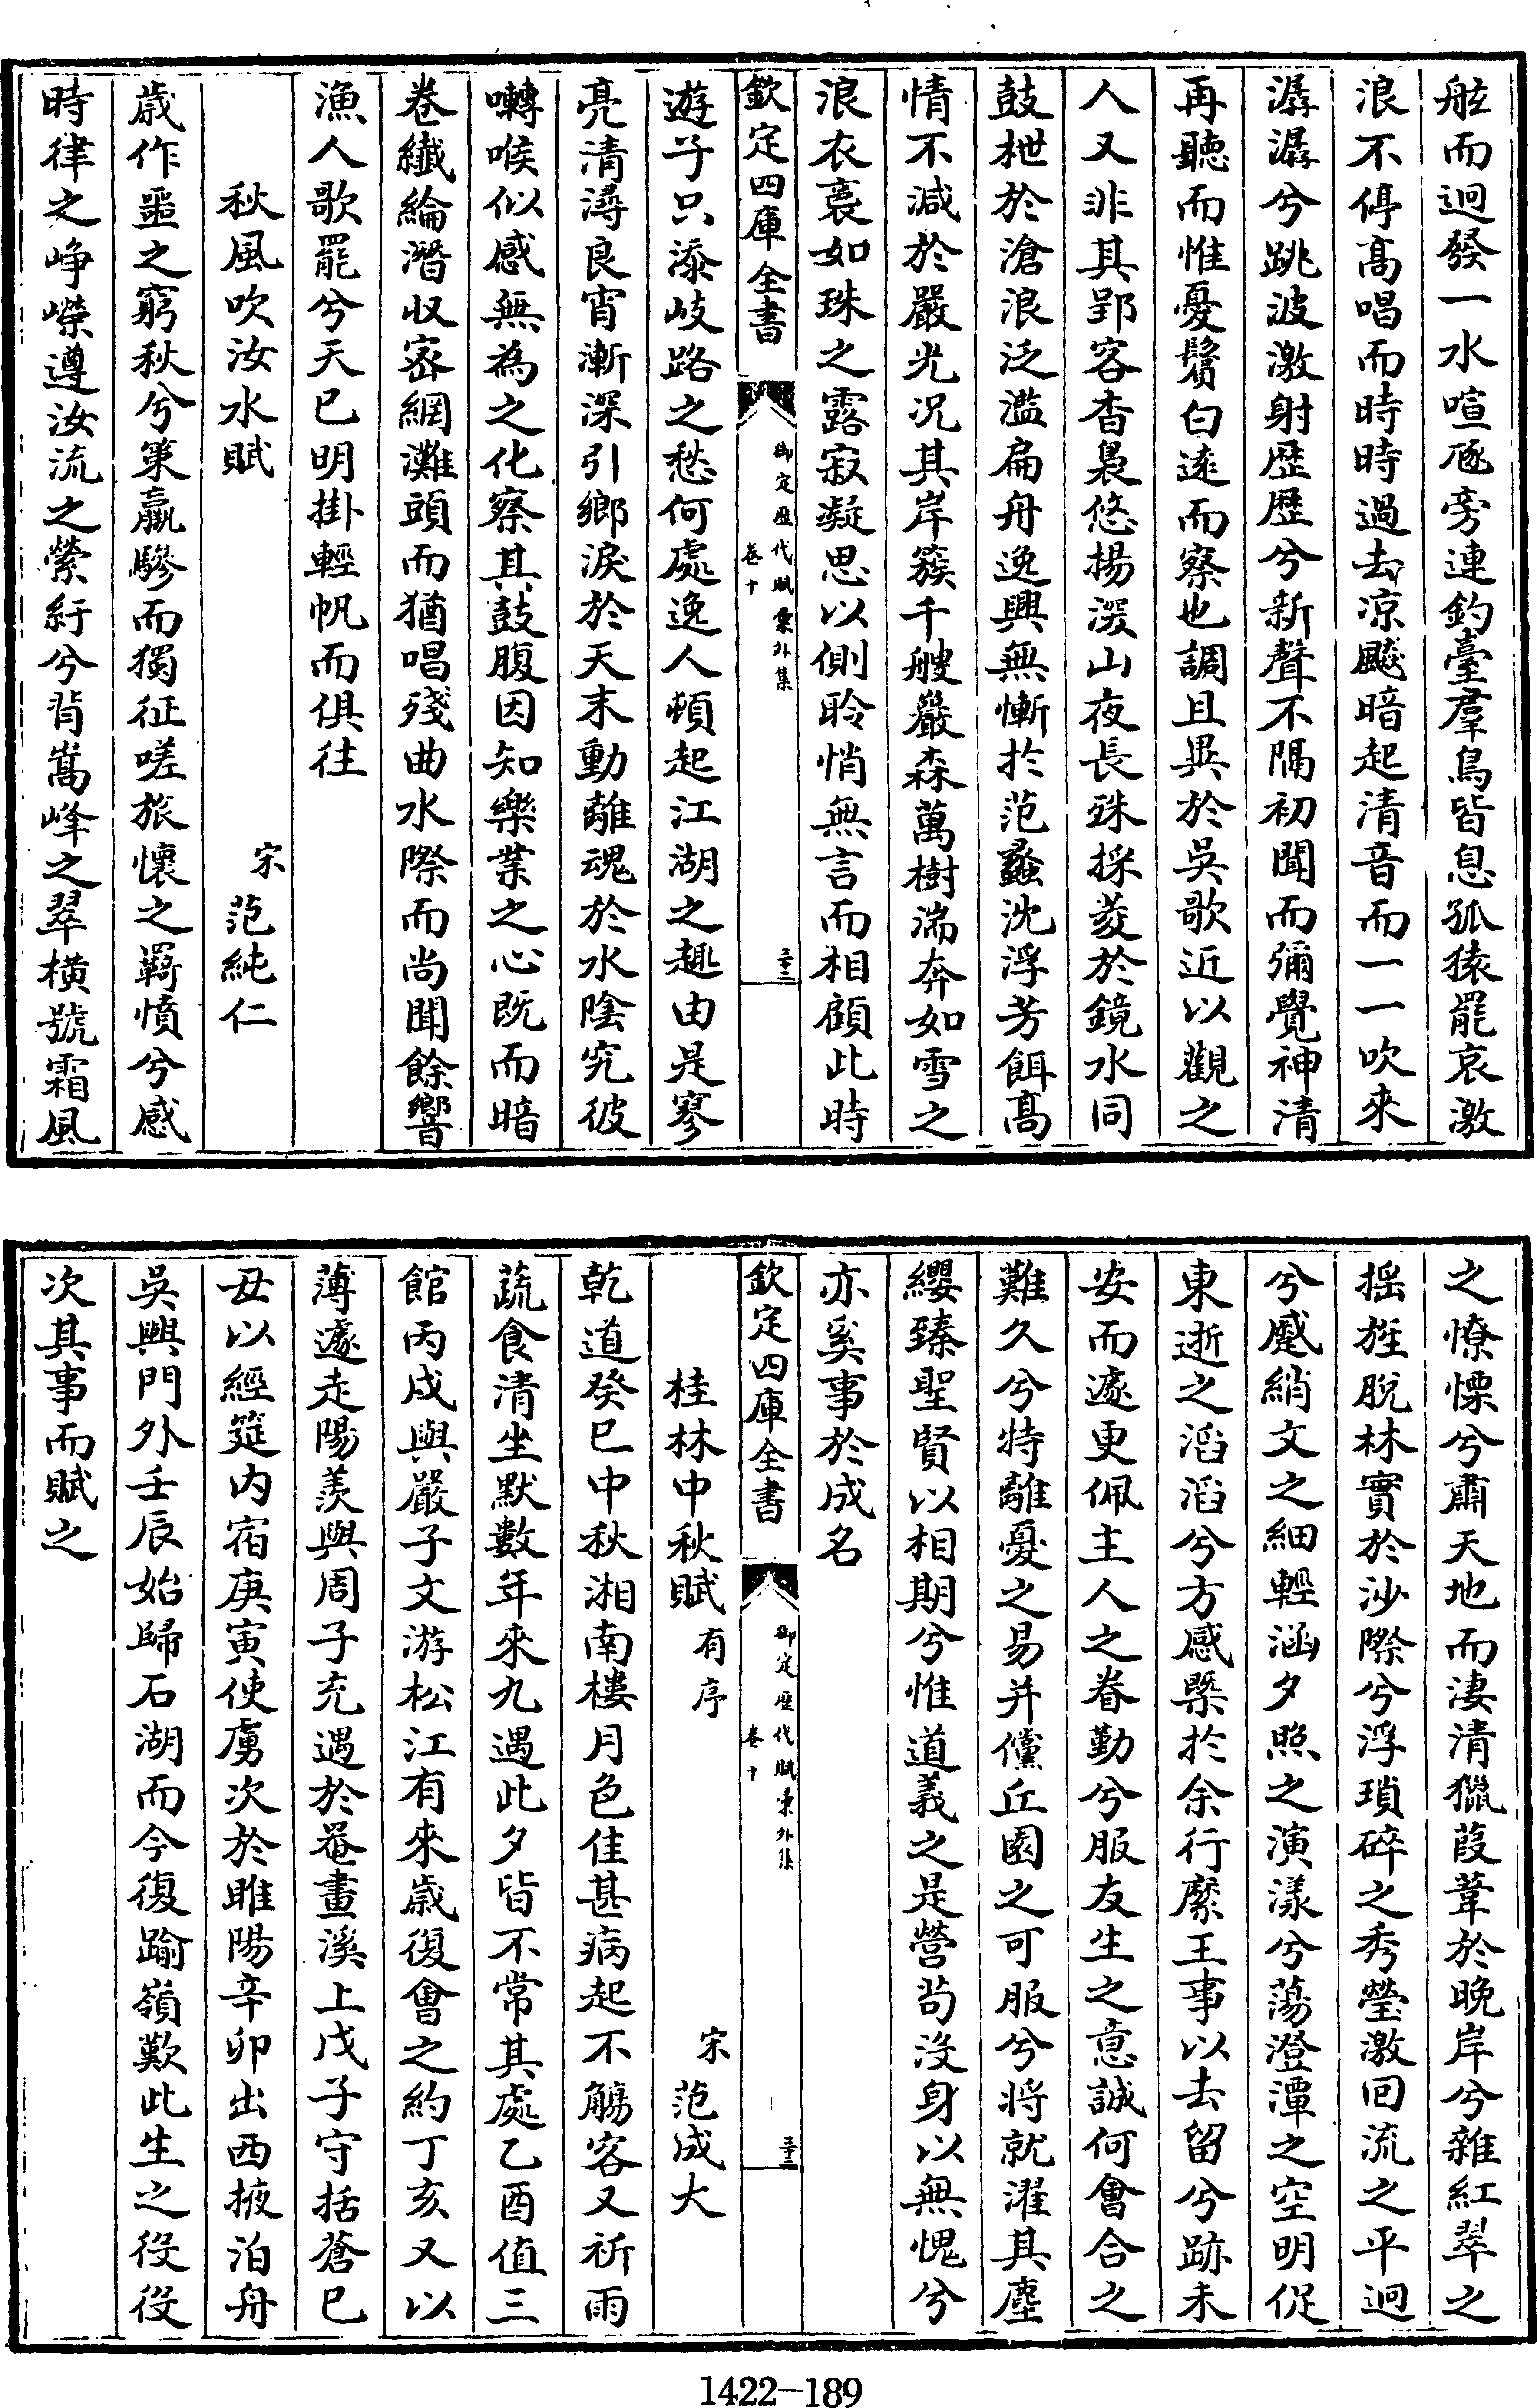 舷而迥發一水喧豗旁連釣臺羣鳥皆息孤猿罷哀激
浪不停高唱而時時過去凉颷暗起清音而一一吹來
潺潺兮跳波激射歴歴兮新聲不隅初聞而彌覺神清
再聽而惟憂鬢白逺而察也調且異於吳歌近以觀之
人又非其郢客杳裊悠揚深山夜長殊採菱於鏡水同
鼓枻於滄浪泛濫扁舟逸興無慚於范蠡沈浮芳餌高
情不減於嚴光况其岸簇千艘巖森萬樹湍奔如雪之
浪衣裛如珠之露寂凝思以側聆悄無言而相顧此時
欽定四庫全書
御定歴代賦彙外集
卷十
三十三
遊子只添岐路之愁何處逸人頓起江湖之趣由是寥
亮清潯良宵漸深引鄉淚於天末動離魂於水陰究彼
囀喉似感無為之化察其鼓腹因知樂業之心既而暗
卷纖綸潛収宻網灘頭而猶唱殘曲水際而尚聞餘響
漁人歌罷兮天已明掛輕帆而俱往
秋風吹汝水賦
宋 范純仁
歲作噩之窮秋兮策羸驂而獨征嗟旅懷之羇憤兮感
時律之崢嶸遵汝流之縈紆兮背嵩峰之翠橫號霜風
之憭慄兮肅天地而淒清獵葭葦於晚岸兮雜紅翠之
揺旌脫林實於沙際兮浮瑣碎之秀瑩激回流之平迥
兮蹙綃文之細輕涵夕照之演漾兮蕩澄潭之空明促
東逝之滔滔兮方感槩於余行縻王事以去留兮跡未
安而遽更佩主人之眷勤兮服友生之意誠何會合之
難久兮特離憂之易并儻丘園之可服兮將就濯其塵
纓臻聖賢以相期兮惟道義之是營茍沒身以無愧兮
亦奚事於成名
欽定四庫全書
御定歴代賦彙外集
卷十
桂林中秋賦有序
宋 范成大
乾道癸巳中秋湘南樓月色佳甚病起不觴客又祈雨
蔬食清坐默數年來九遇此夕皆不常其處乙酉值三
館丙戌與嚴子文游松江有來歲復會之約丁亥又以
薄遽走陽羨與周子充遇於罨畫溪上戊子守括蒼己
丑以經筵内宿庚寅使虜次於睢陽辛卯出西掖泊舟
吳興門外壬辰始歸石湖而今復踰嶺歎此生之役役
次其事而賦之
1422-189